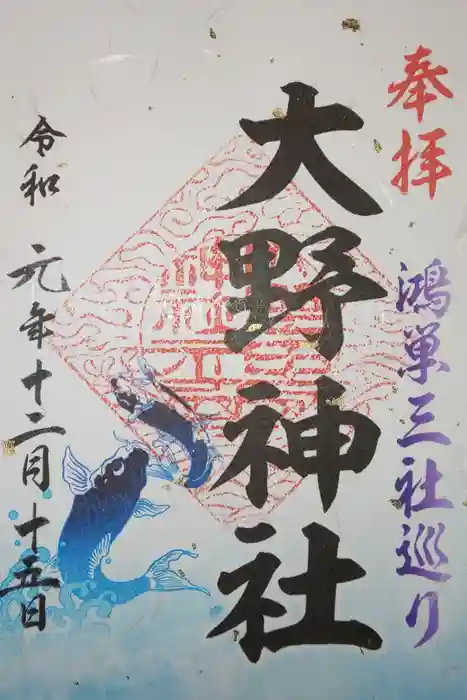 奉拝
鴻巣三社巡り
大野神社
令和元年十二月十五日